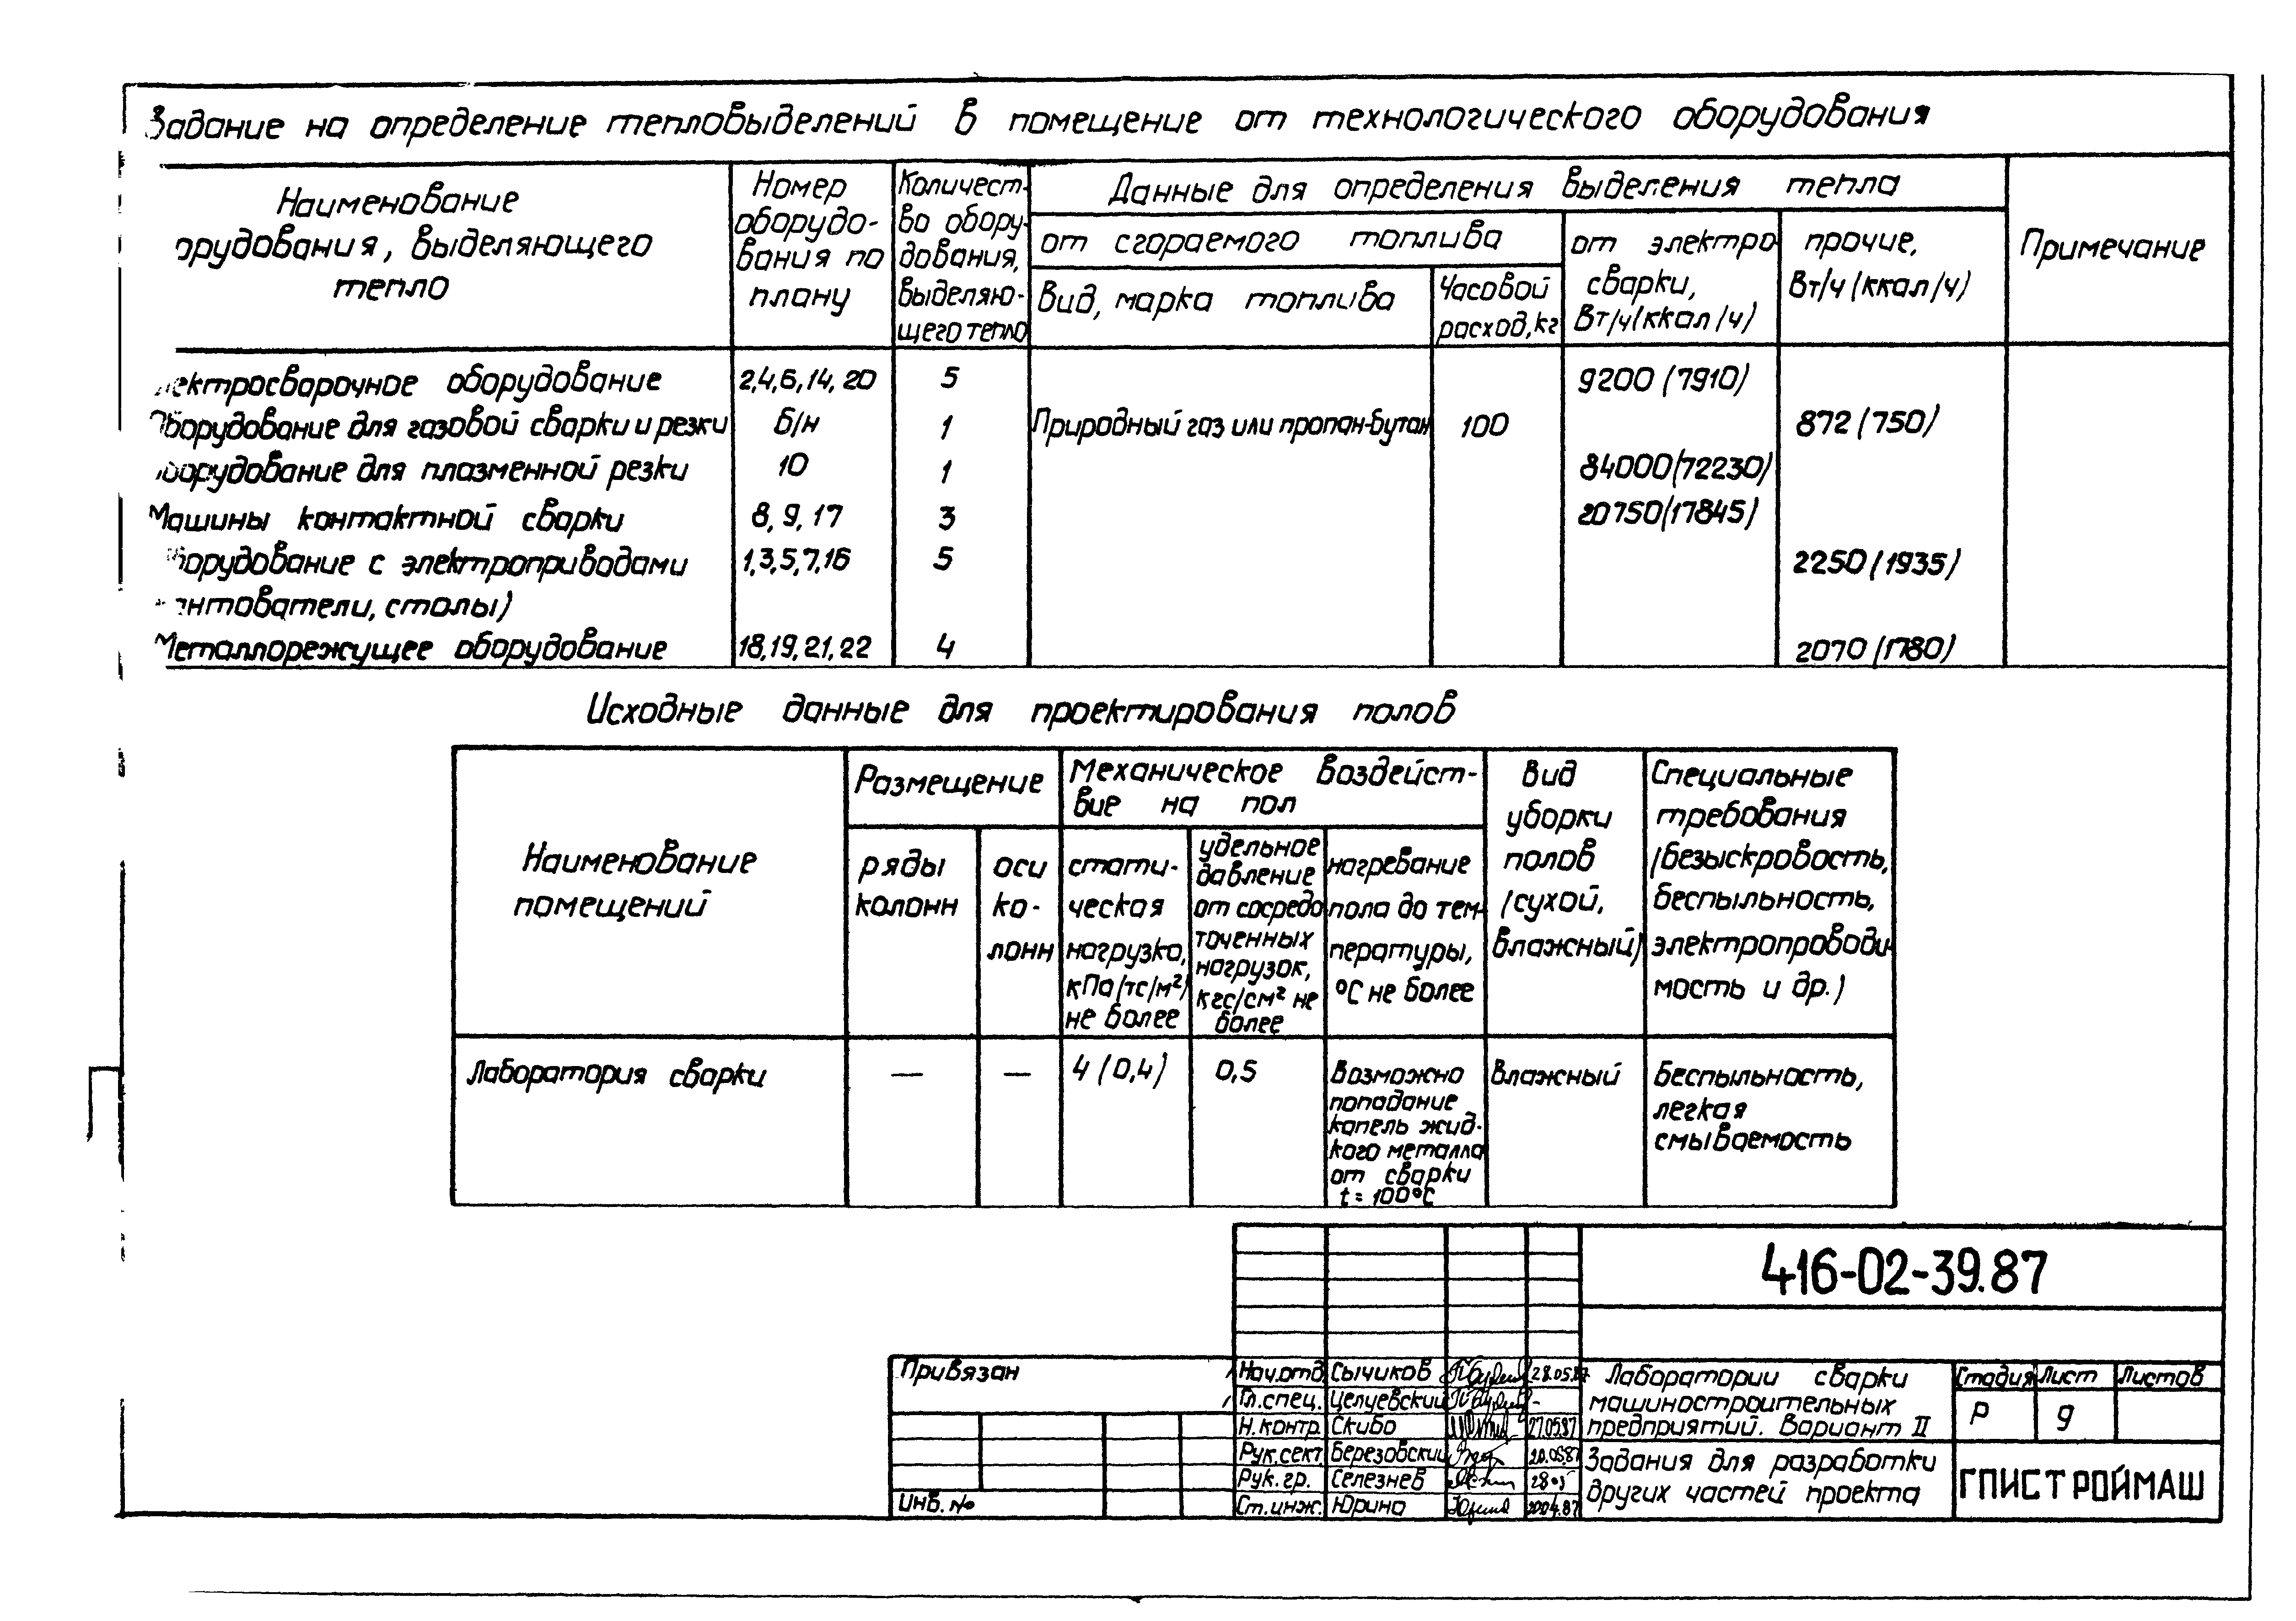 Задание на определение тепловыделений в помещение от технологического оборудования
Наименование
орудования, выделяющего
тепло
Номер
оборудо-
вания по
плану
Количест-
во обору-
дования,
выделяю-
щего тепло
Данные для определения выделения тепла
от сгораемого топлива
Вид, марка топлива
Часовой
расход, кг
от электро
сварки,
Вт/ч (ккал/ч)
прочие,
Вт/ч (ккал/ч)
Примечание
лектросварочное оборудование 2,4,6,14,20 5 9200 (7910)
Оборудование для газовой сварки и резки б/н 1 Природный газ или пропан-бутан 100 872 (750)
оборудование для плазменной резки 10 1 84000 (72230)
Машины контактной сварки 8, 9, 17 3 20750 (17845)
орудование с электроприводами 1,3,5,7,16 5 2250 (1935)
антователи, столы)
Металлорежущее оборудование 18,19,21,22 4 2070 (1780)
Исходные данные для проектирования полов
Наименование
помещений
Размещение
ряды
колонн
оси
ко-
лонн
Механическое воздейст-
вие на пол
стати-
ческая
нагрузка,
кПа (тс/м²)
не более
удельное
давление
от сосредо
точенных
нагрузок,
кгс/см² не
более
нагревание
пола до тем-
пературы,
°С не более
Вид
уборки
полов
(сухой,
влажный)
Специальные
требования
(безыскровость,
беспыльность,
электропроводи-
мость и др.)
Лаборатория сварки — — 4 (0,4) 0,5
Возможно
попадание
капель жид-
кого металла
от сварки
t = 100°С
Влажный
Беспыльность,
легкая
смываемость
416-02-39.87
Привязан
Инв. №
Нач.отд. Сычиков 28.05.87
Гл.спец. Целуевский
Н.контр. Скибо 27.05.87
Рук.сект. Березовский 20.05.87
Рук.гр. Селезнев 28.05
Ст.инж. Юрина 20.04.87
Лаборатории сварки
машиностроительных
предприятий. Вариант II
Задания для разработки
других частей проекта
Стадия Лист Листов
Р 9
ГПИСТРОЙМАШ